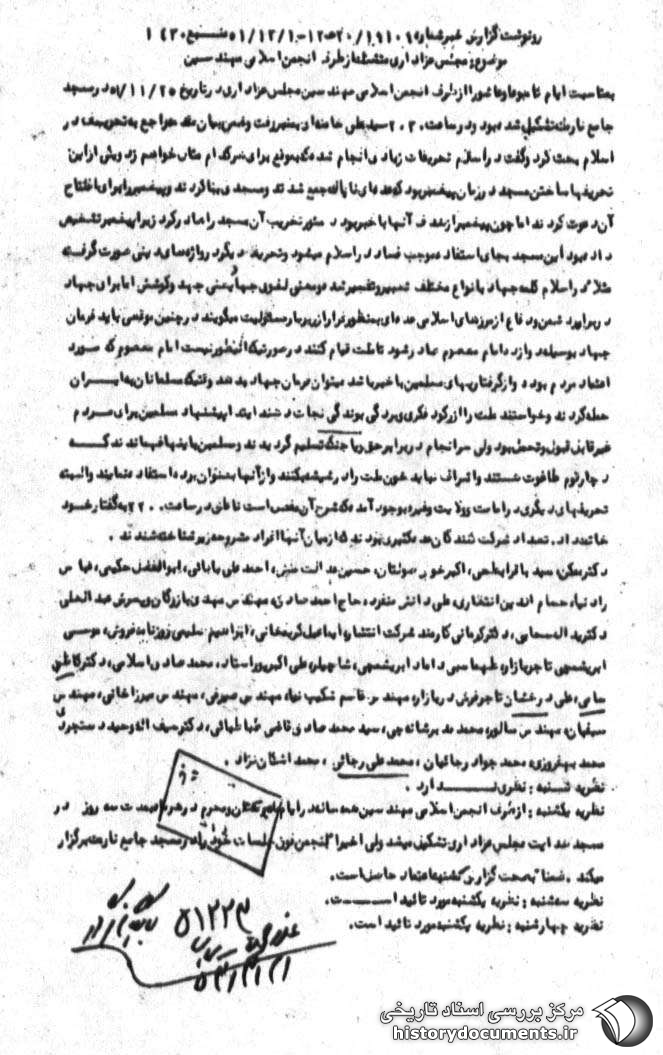 رونوشت گزارش خبر شماره
موضوع: مجلس عزاداری متشکله از طرف انجمن اسلامی مهندسین
بمناسبت ایام تاسوعا و عاشورا از طرف انجمن اسلامی مهندسین مجلس عزاداری در تاریخ در مسجد
جامع نارمک تشکیل شده بود و در ساعت سید علی خامنه‌ای بمنبر رفت و ضمن بیان مقدمه راجع به تحریف در
اسلام بحث کرد و گفت در اسلام تحریفات زیادی انجام شده که بموقع برای هر کدام مثال خواهم زد و پیش از این
تحریفها ساختن مسجد در زمان پیغمبر بود که عده‌ای ناپاک جمع شدند و مسجدی بنا کردند و پیغمبر را برای افتتاح
آن دعوت کردند اما چون پیغمبر از هدف آنها با خبر بود دستور تخریب آن مسجد را صادر کرد زیرا پیغمبر تشخیص
داده بود این مسجد بجای استفاده موجب فساد در اسلام میشود و تحریف دیگر در واژه‌های دینی صورت گرفته
مثلا در اسلام کلمه جهاد بانواع مختلف تعبیر و تفسیر شده و معنی لغوی جهاد یعنی جهد و کوشش اما برای جهاد
در برابر دشمن و دفاع از مرزهای اسلامی عده‌ای بمنظور فرار از زیر بار مسئولیت میگویند در چنین موقعی باید فرمان
جهاد بوسیله دوازده امام معصوم صادر شود تا ملت قیام کنند در صورتیکه اینطور نیست امام معصوم که مورد
اعتماد مردم بوده و از گرفتاریهای مسلمین با خبر باشد میتواند فرمان جهاد بدهد وقتیکه مسلمانان به ایران
حمله کردند و خواستند ملت را از رکود فکری و بردگی بوندگی نجات دهند ابتدا پیشنهاد مسلمین برای مردم
غیر قابل قبول و تحمل بود ولی سرانجام در برابر حق و یا جنگ تسلیم گردیدند و مسلمین باینها فهماندند که
دچار قوم طاغوت هستند و اشراف نباید خون ملت را در شیشه بکنند و از آنها بعنوان برده استفاده نمایند والبته
تحریفهای دیگری در امامت و ولایت و غیره بوجود آمده که شرح آن مفصل است ناطق در ساعت ۲۲۰۰ به گفتار خود
خاتمه داد. تعداد شرکت کنندگان عده کثیری بودند که از میان آنها افراد مشروحه زیر شناخته شدند.
دکتر ملکی، سید باقر ابطحی، اکبر خو حسین عدالت منش، احمد علی بابائی، ابوالفضل حکیمی، عباس
رادنیا، حسام الدین انتظاری، علی دانش منفرد، حاج احمد صادق، مهندس مهدی بازرگان و پسرش عبدالعلی
دکتر یداله سحابی، دکتر کرمانی کارمند شرکت انتشار، اسماعیل کریمخانی، ابراهیم سلیمی روزنامه فروش، موسی
ابریشمچی تاجر بازار، طهماسبی داماد ابریشمچی، علی اکبر پور استاد، محمد صادق اسلامی، دکتر کاظم
سامی، علی درخشان تاجر فرش در بازار، مهندس قاسم شکیب نیا، مهندس صیرفی، مهندس میرزاخانی، مهندس
سیفیان، مهندس سالور، محمد مدیر شانه‌چی، سید محمد صادق قاضی طباطبائی، دکتر سیف اله وحید دستجردی
محمد بهفروزی، محمد جواد رجائیان، محمد علی رجائی، محمد اشکان نژاد.
نظریه شنبه: نظری ندارد.
نظریه یکشنبه: از طرف انجمن اسلامی مهندسین همه ساله در ایام محرم بمدت سه روز در
مسجد هدایت مجلس عزاداری تشکیل میشد ولی اخیرا انجمن فوق جلسات خود را در مسجد جامع نارمک برگزار
میکند. ضمنا بصحت گزارش شنبه اعتماد حاصل است.
نظریه سه‌شنبه: نظریه یکشنبه مورد تائید است.
نظریه چهارشنبه: نظریه یکشنبه مورد تائید است.
۵۱۲۲۳
مرکز بررسی اسناد تاریخی
historydocuments.ir